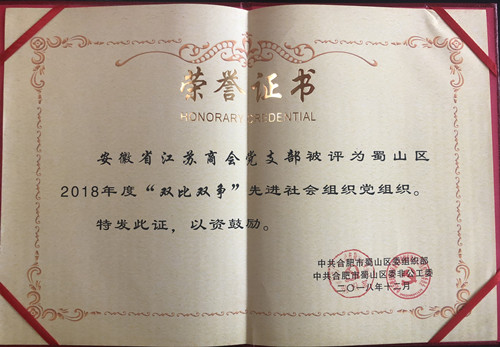 荣誉证书
HONORARY CRUDENTIAL
安徽省江苏商会党支部被评为蜀山区
2018年度“双比双争”先进社会组织党组织。
特发此证，以资鼓励。
中共合肥市蜀山区委组织部
中共合肥市蜀山区委非公工委
二〇一八年十二月